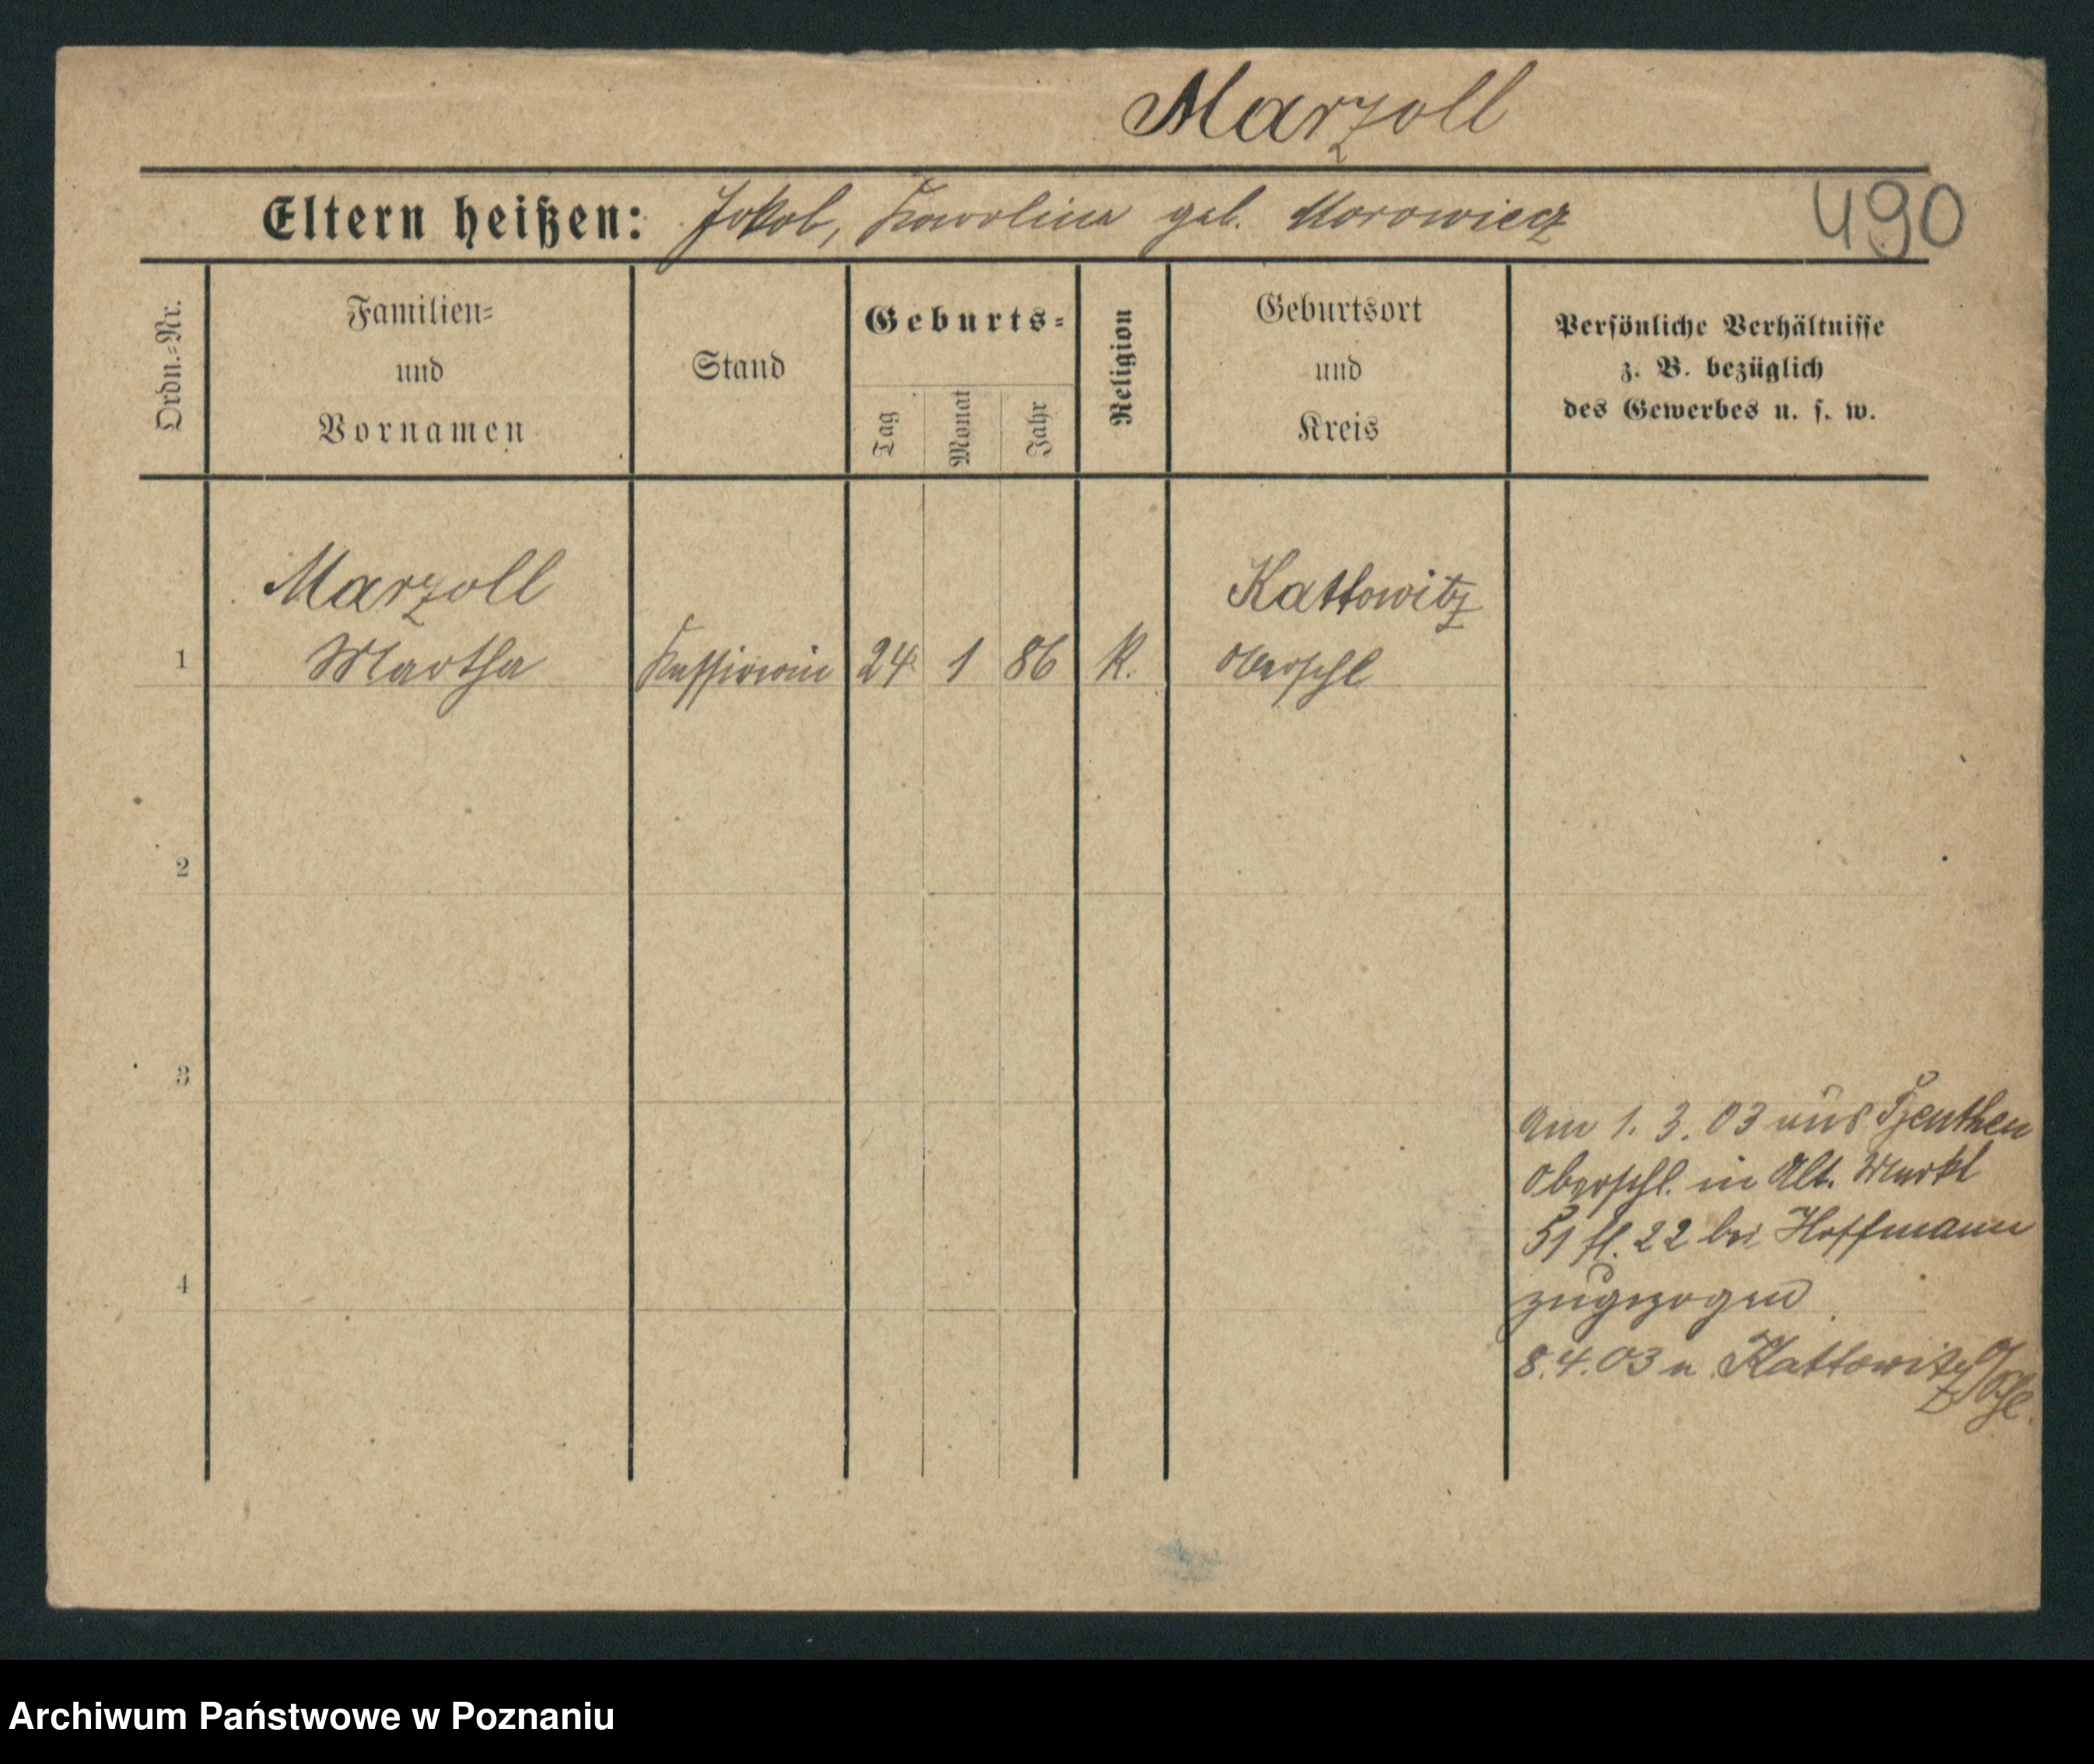 Marzoll
Eltern heißen: Jakob, Karolina geb. Morowiecz
490
Ordn.=Nr.
Familien=
und
Vornamen
Stand
Geburts=
Tag
Monat
Jahr
Religion
Geburtsort
und
Kreis
Persönliche Verhältnisse
z. B. bezüglich
des Gewerbes u. s. w.
Marzoll
Kattowitz
1 Martha Kassirerin 24 1 86 K. Oberschl
2
3
am 1. 3. 03 aus Beuthen
Oberschl. in Alt. Markt
51 II. 22 bei Hoffmann
4
zugezogen
8.4.03 n Kattowitz
Archiwum Państwowe w Poznaniu